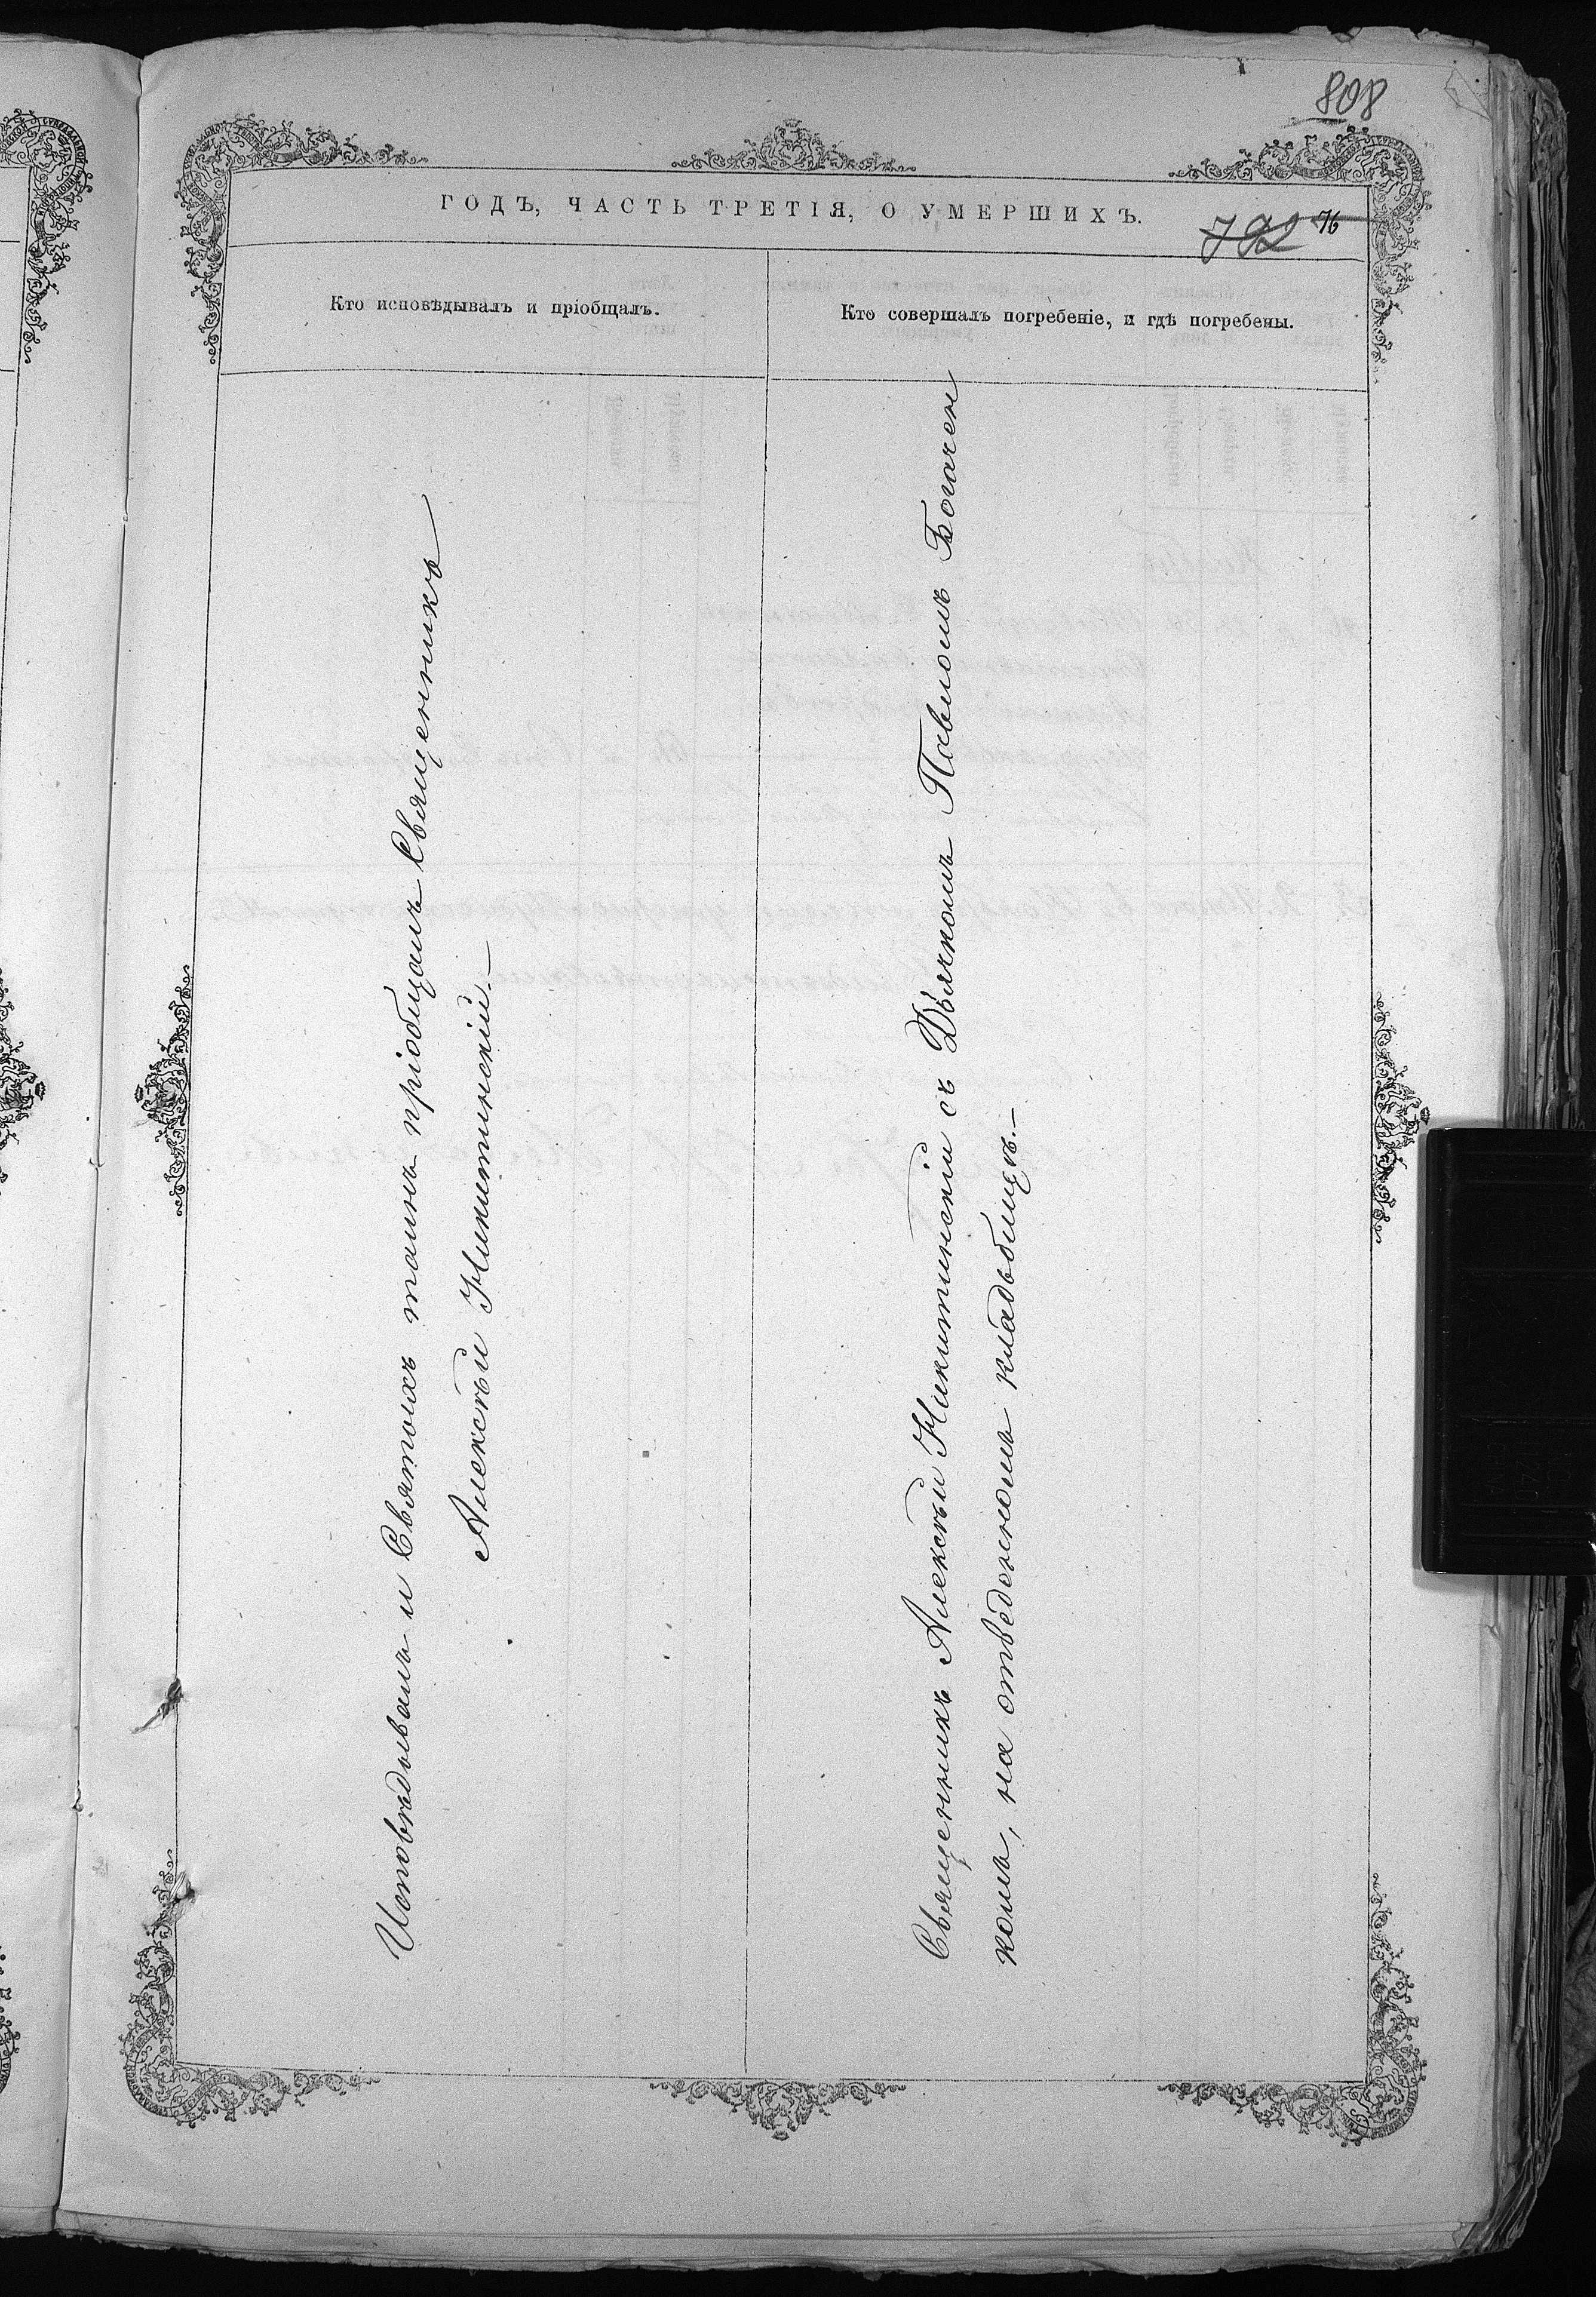 808
ГОДЪ, ЧАСТЬ ТРЕТІЯ, О УМЕРШИХЪ.
792 76
Кто исповѣдывалъ и пріобщалъ.
Кто совершалъ погребеніе, и гдѣ погребены.
Исповѣдывалъ и Святыхъ таинъ пріобщалъ Священникъ
Алексѣй Никитинскій.—
Священникъ Алексѣй Никитинскій съ Дьякомъ Павломъ Богачен
комъ, на отведенномъ кладбищѣ.—